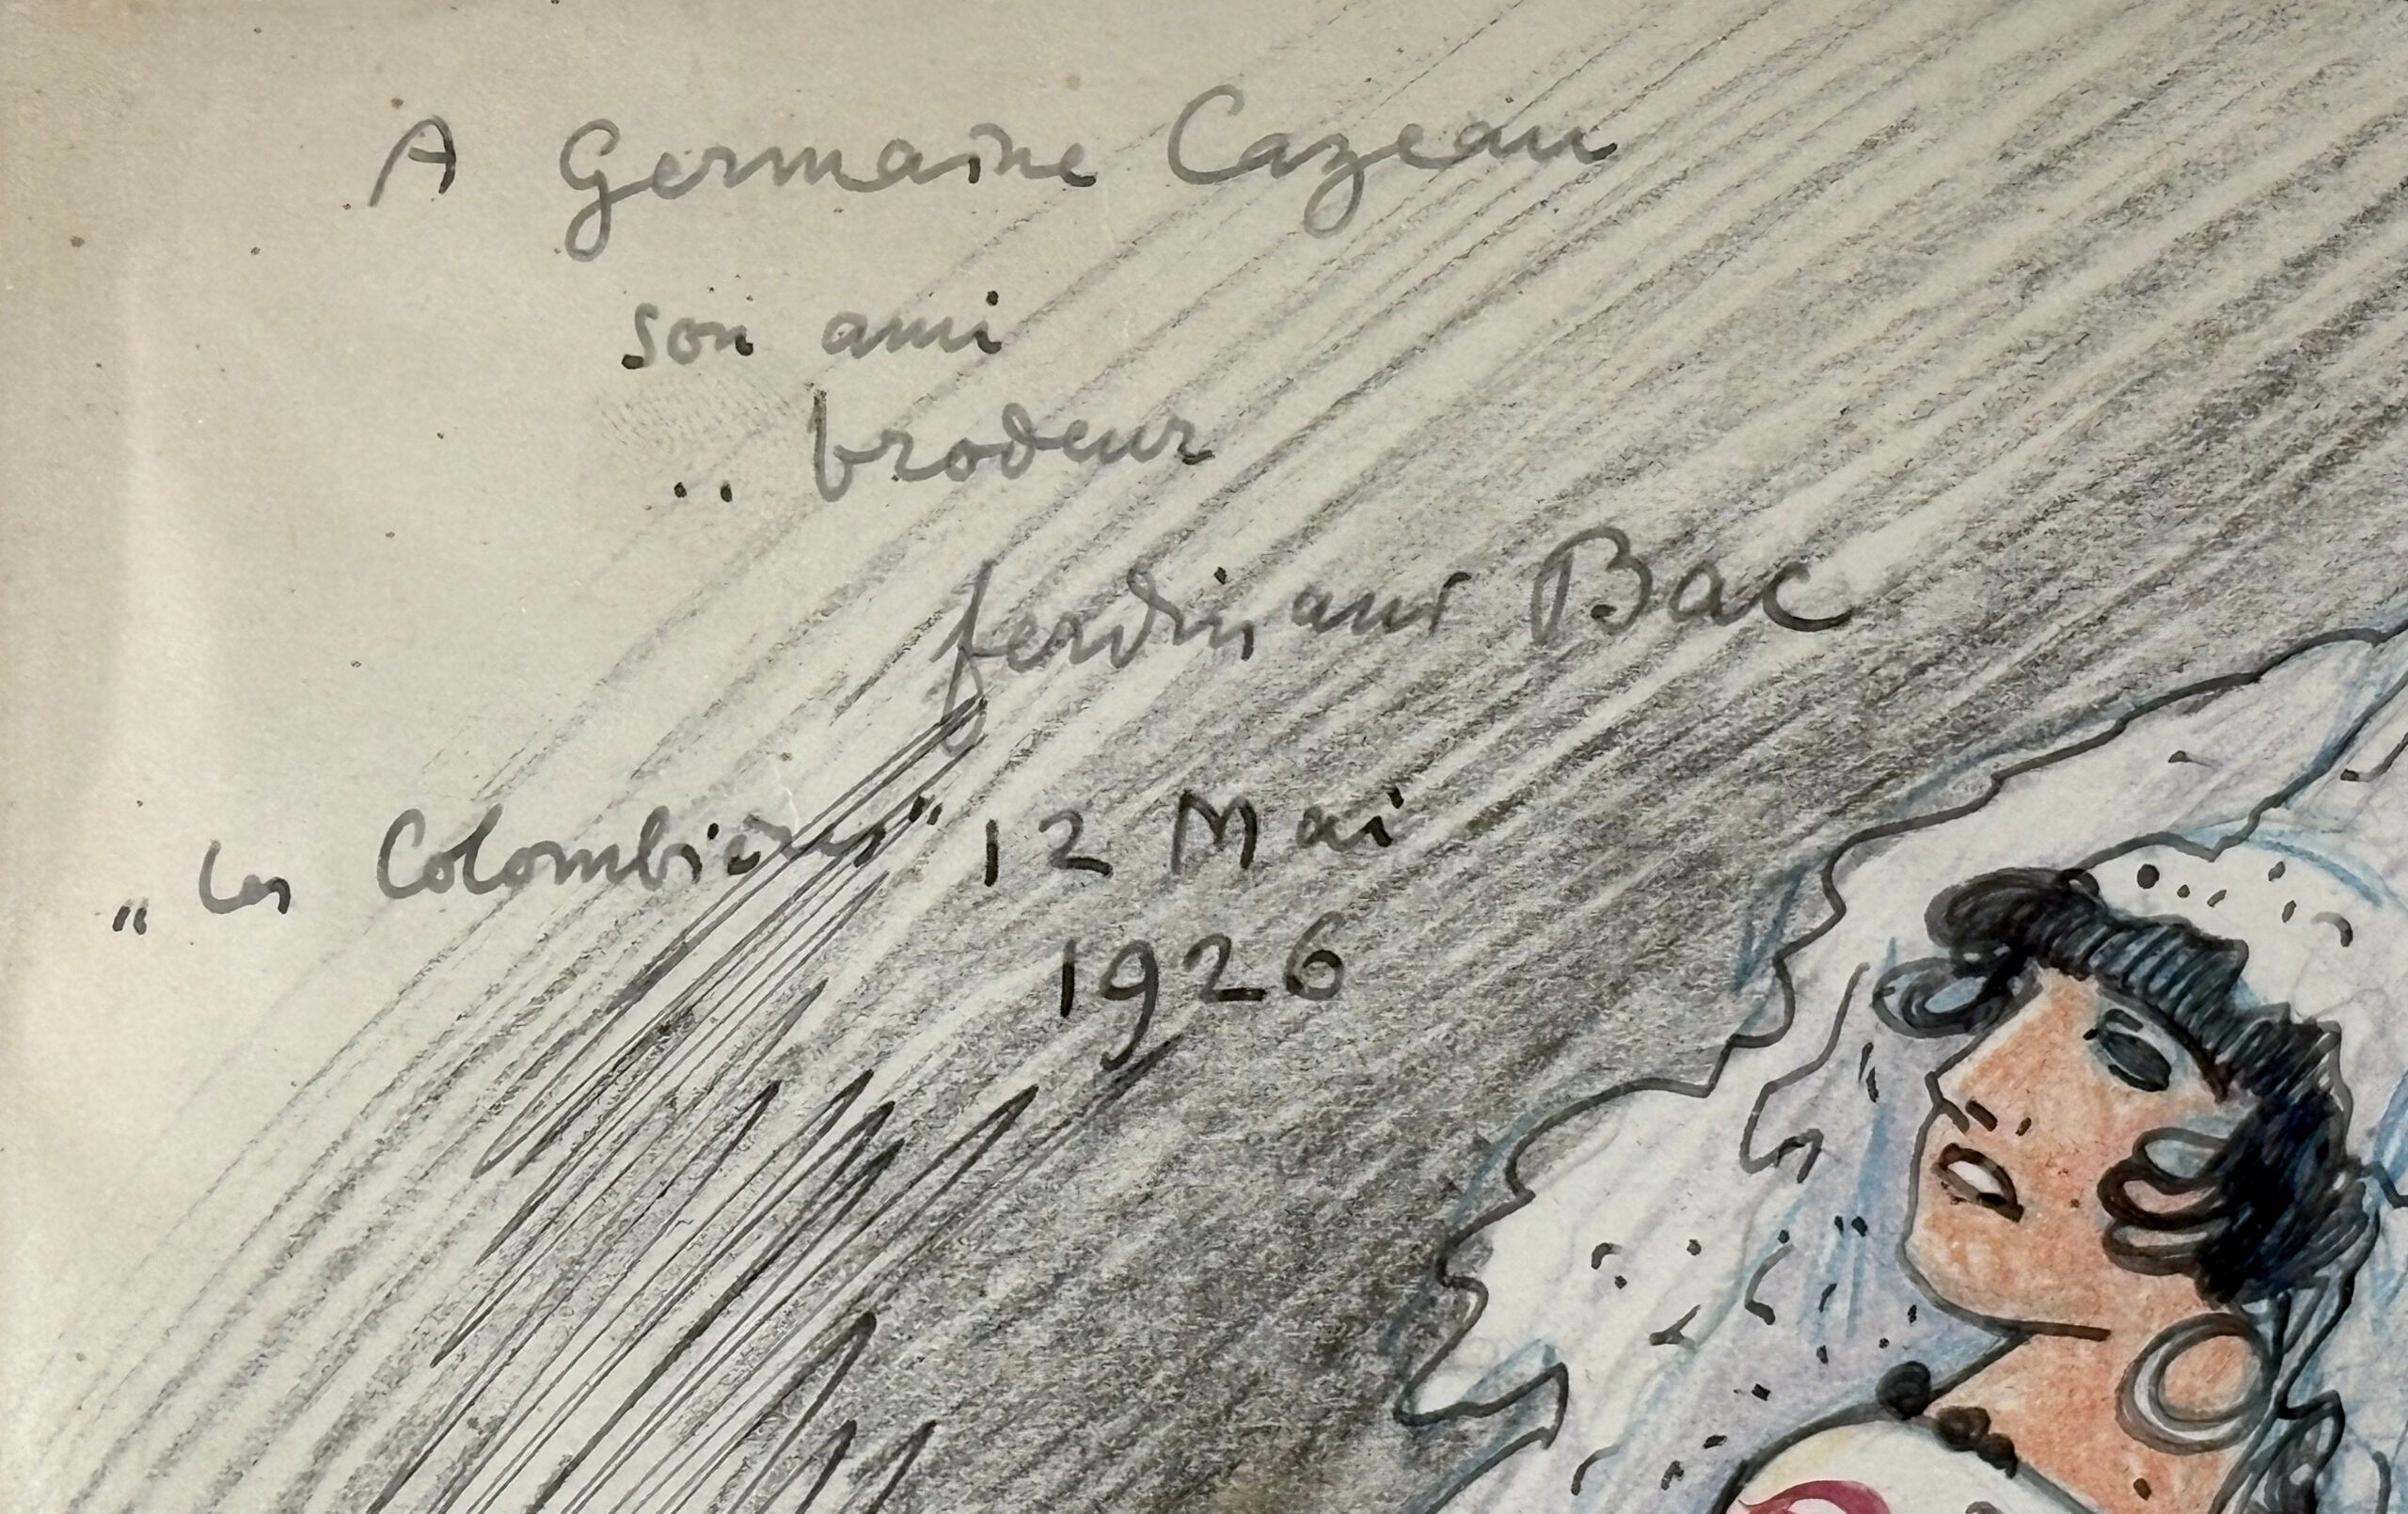 A Germaine Cazeau
son ami
.. brodeur
ferdinand Bac
„Les Colombières" 12 Mai
1926